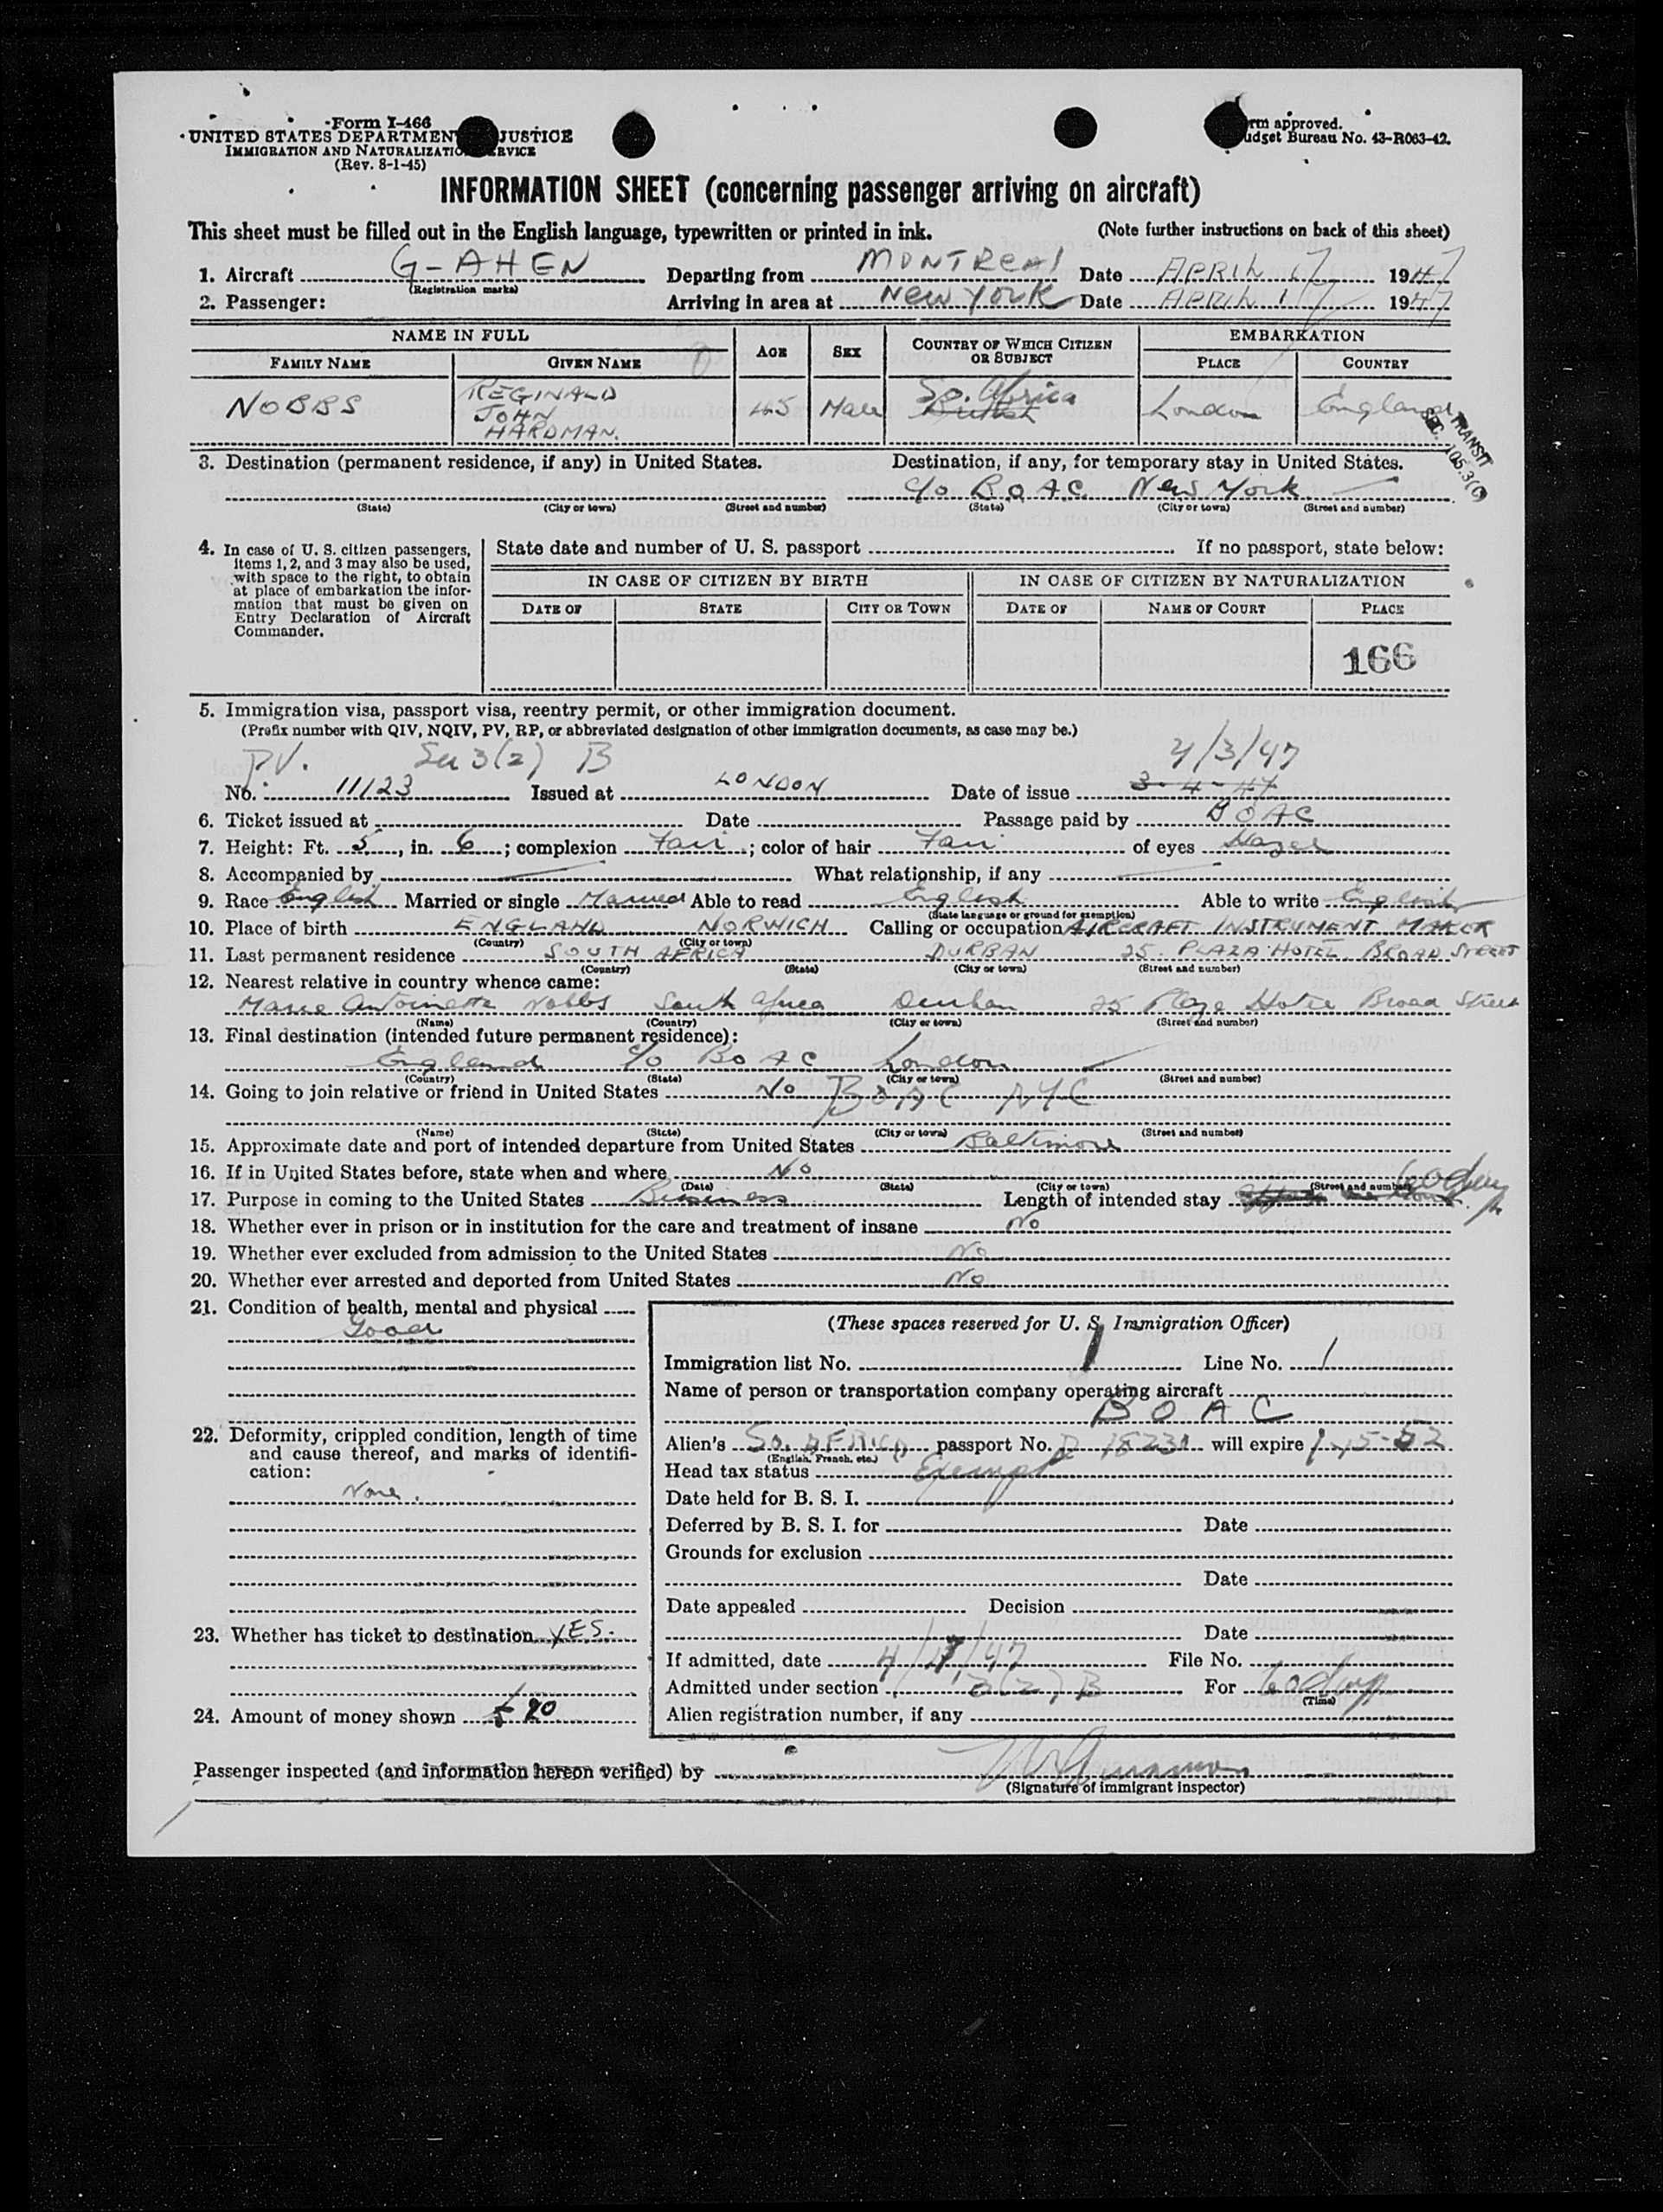 Form I-466
UNITED STATES DEPARTMENT JUSTICE
IMMIGRATION AND NATURALIZATIO RVICE
(Rev. 8-1-45)
rm approved.
udget Bureau No. 43-R063-42.
INFORMATION SHEET (concerning passenger arriving on aircraft)
This sheet must be filled out in the English language, typewritten or printed in ink. (Note further instructions on back of this sheet)
1. Aircraft G-AHEN Departing from MONTREAL Date APRIL 17 1947
(Registration marks)
2. Passenger: Arriving in area at NEW YORK Date APRIL 17 1947
NAME IN FULL AGE SEX COUNTRY OF WHICH CITIZEN OR SUBJECT EMBARKATION
FAMILY NAME GIVEN NAME PLACE COUNTRY
NOBBS REGINALD JOHN HARDMAN. 45 Male So. Africa British London England
TRANSIT
SEC. 105.3(c)
3. Destination (permanent residence, if any) in United States. Destination, if any, for temporary stay in United States.
c/o B.O.A.C. New York
(State) (City or town) (Street and number) (State) (City or town) (Street and number)
4. In case of U. S. citizen passengers, items 1, 2, and 3 may also be used, with space to the right, to obtain at place of embarkation the information that must be given on Entry Declaration of Aircraft Commander.
State date and number of U. S. passport If no passport, state below:
IN CASE OF CITIZEN BY BIRTH IN CASE OF CITIZEN BY NATURALIZATION
DATE OF STATE CITY OR TOWN DATE OF NAME OF COURT PLACE
166
5. Immigration visa, passport visa, reentry permit, or other immigration document.
(Prefix number with QIV, NQIV, PV, RP, or abbreviated designation of other immigration documents, as case may be.)
PV. Sec 3(2) B 4/3/47
No. 11123 Issued at LONDON Date of issue 3-4-47
6. Ticket issued at Date Passage paid by BOAC
7. Height: Ft. 5, in. 6; complexion Fair; color of hair Fair of eyes Hazel
8. Accompanied by What relationship, if any
9. Race English Married or single Married Able to read English Able to write English
(State language or ground for exemption)
10. Place of birth ENGLAND NORWICH Calling or occupation AIRCRAFT INSTRUMENT MAKER
(Country) (City or town)
11. Last permanent residence SOUTH AFRICA DURBAN 25 PLAZA HOTEL BROAD STREET
(Country) (State) (City or town) (Street and number)
12. Nearest relative in country whence came:
Marie Antoinette Nobbs South Africa Durban 25 Plaza Hotel Broad Street
(Name) (Country) (City or town) (Street and number)
13. Final destination (intended future permanent residence):
England c/o BOAC London
(Country) (State) (City or town) (Street and number)
14. Going to join relative or friend in United States No BOAC NYC
(Name) (State) (City or town) (Street and number)
15. Approximate date and port of intended departure from United States Baltimore
16. If in United States before, state when and where No
(Date) (State) (City or town) (Street and number)
17. Purpose in coming to the United States Business Length of intended stay 60 days
18. Whether ever in prison or in institution for the care and treatment of insane No
19. Whether ever excluded from admission to the United States No
20. Whether ever arrested and deported from United States No
21. Condition of health, mental and physical
Good
22. Deformity, crippled condition, length of time and cause thereof, and marks of identification:
None.
23. Whether has ticket to destination YES.
24. Amount of money shown £20
(These spaces reserved for U. S. Immigration Officer)
Immigration list No. 1 Line No. 1
Name of person or transportation company operating aircraft
BOAC
Alien's So. AFRICA passport No. will expire 1-15-52
(English, French, etc.)
Head tax status Exempt
Date held for B. S. I.
Deferred by B. S. I. for Date
Grounds for exclusion
Date
Date appealed Decision
Date
If admitted, date 4/17/47 File No.
Admitted under section 3(2) B For 60 days
(Time)
Alien registration number, if any
Passenger inspected (and information hereon verified) by
(Signature of immigrant inspector)